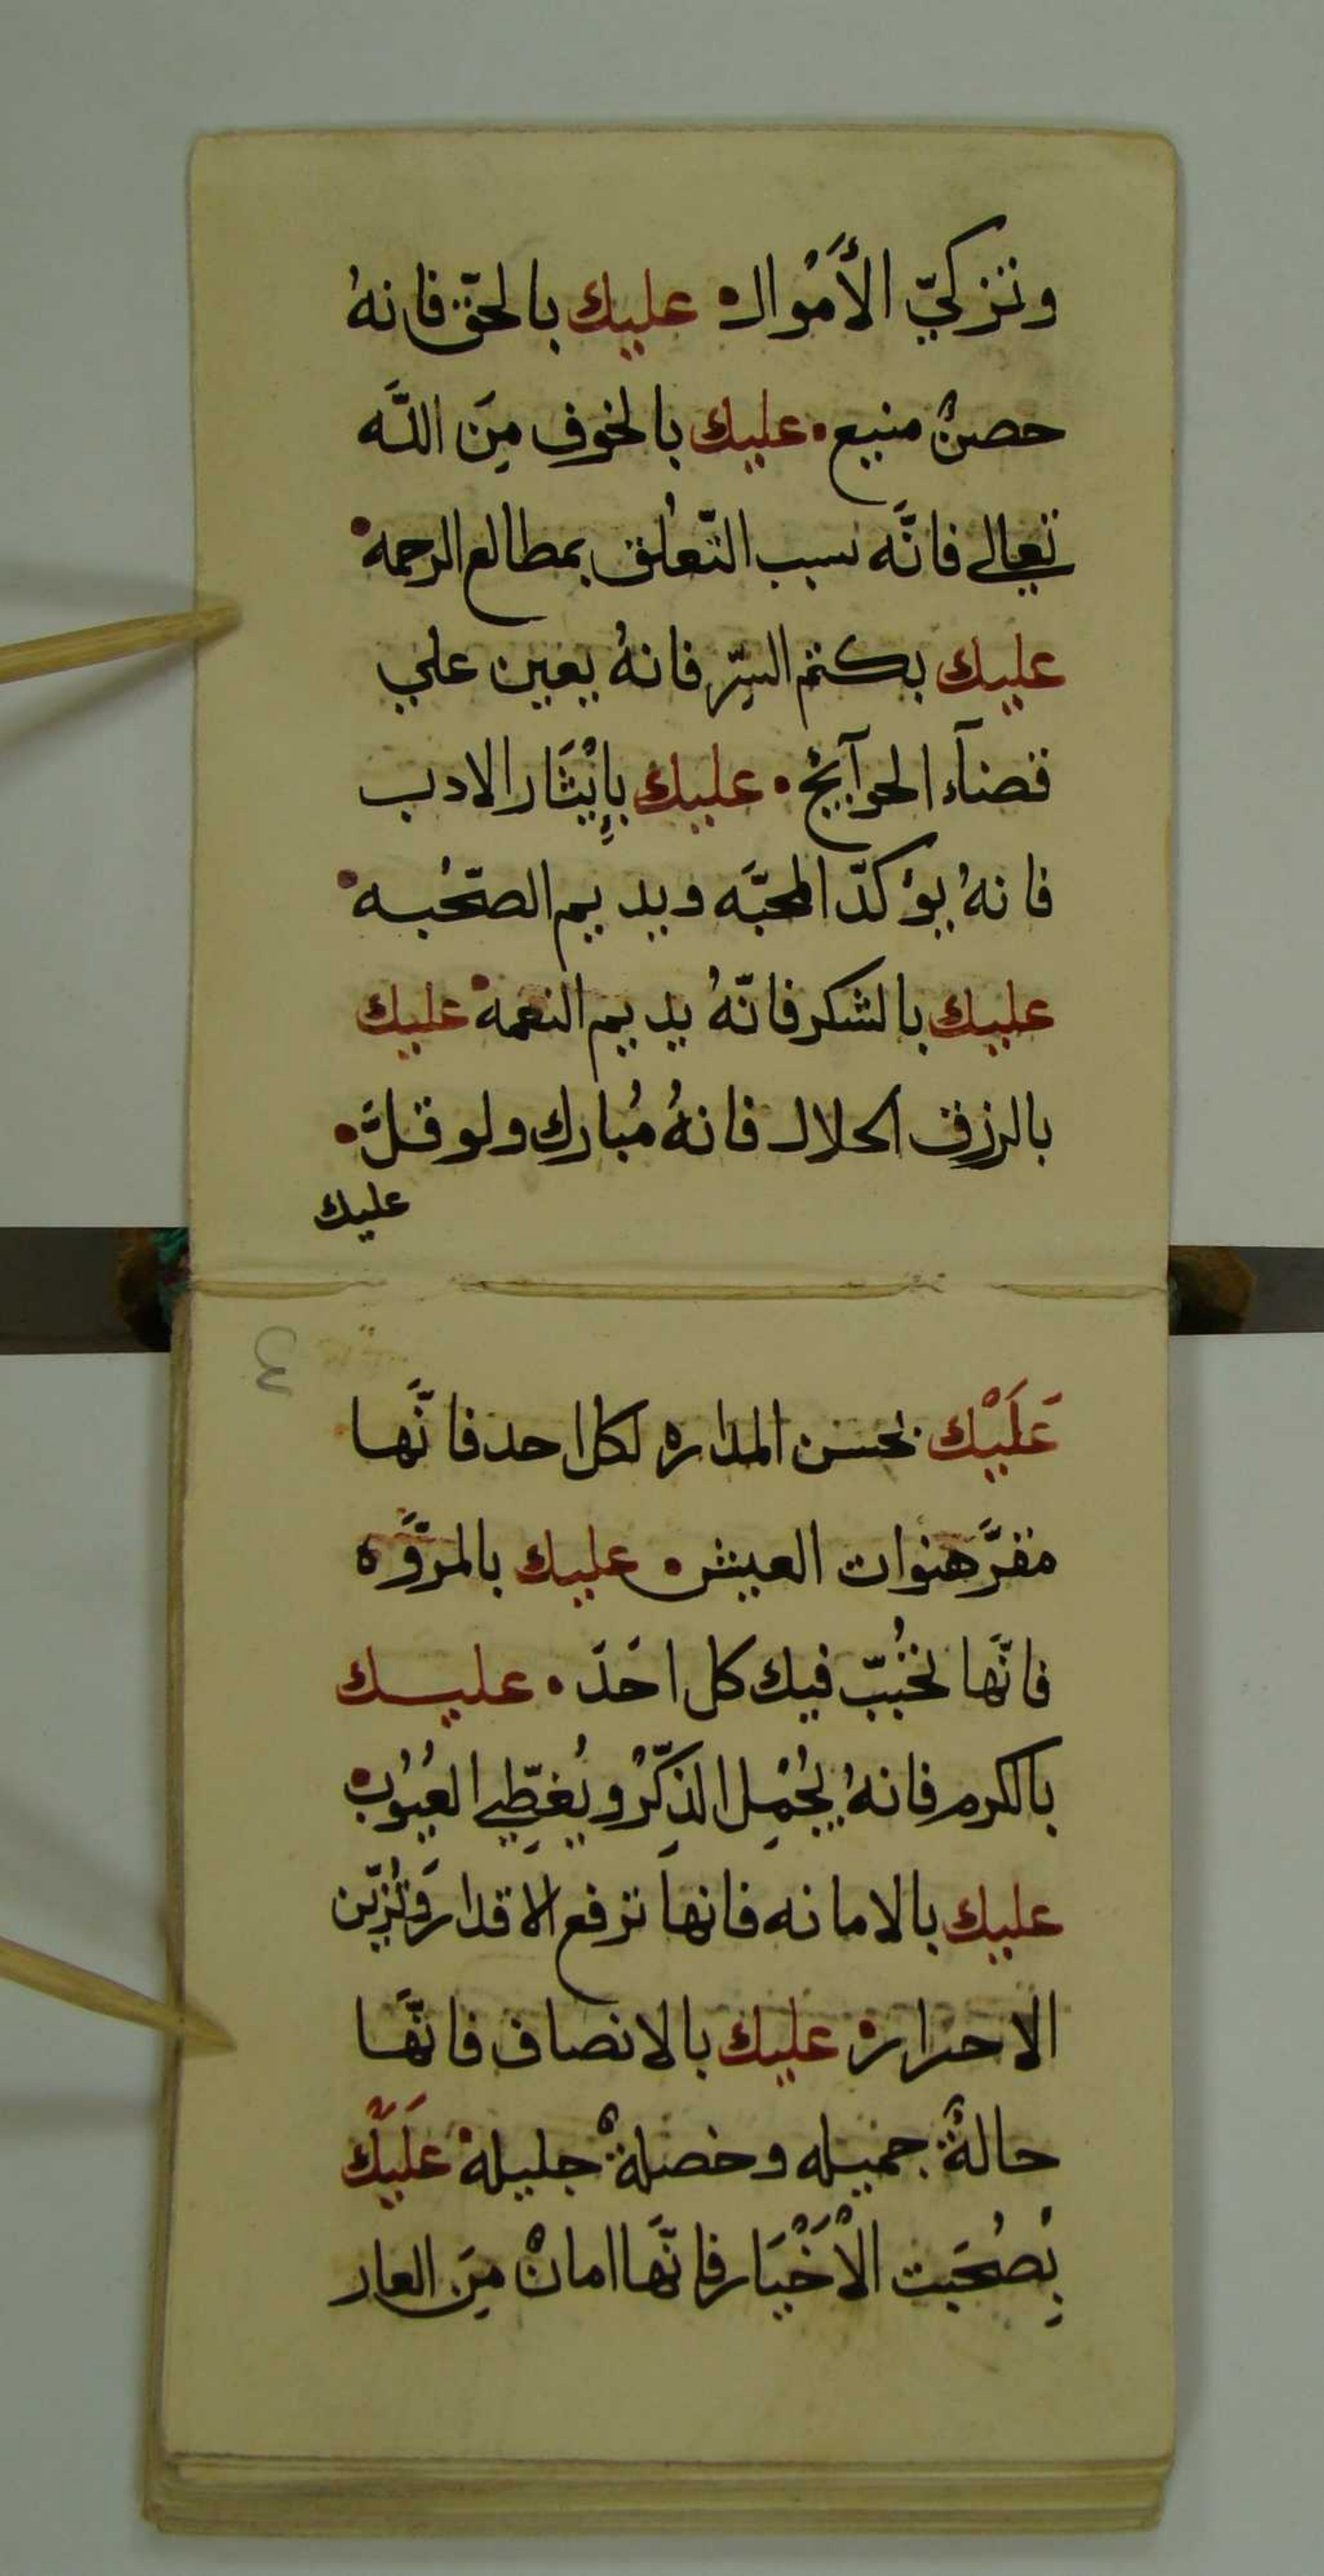 وتزكيّ الأَمْوال عليك بالحقّ فانهُ
حصنٌ منيع عليك بالخوف مِنَ اللَّه
تعالي فانَّه سبب التّعلق بمطالع الرحمه
عليك بكتم السِّر فانهُ يعين علي
قضآء الحوآيج عليك بإِيْثَار الادب
فانهُ يؤكدّ المحبَّه ويديم الصّحُبه
عليك بالشكر فانّهُ يديم النعمه عليك
بالرزق الحلال فانهُ مُبارك ولو قلَّ
عليك
٤
عَلَيْك بحسن المداره لكل احد فانَّها
مقرَّ هنوات العيش عليك بالمروَّه
فانَّها تحُببّ فيك كل احَدَ عليك
بالكرم فانهُ يُجْمِل الذِكّرْ ويُغطِّي العُيُوب
عليك بالامانه فانها ترفع الاقدار وَتُزيّن
الاحرار عليك بالانصاف فانَّها
حالةٌ جميله وخصلةٌ جليله عَلَيْك
بِصُحَبْت الْاَخْيَار فانَّها امانٌ مِنَ العار